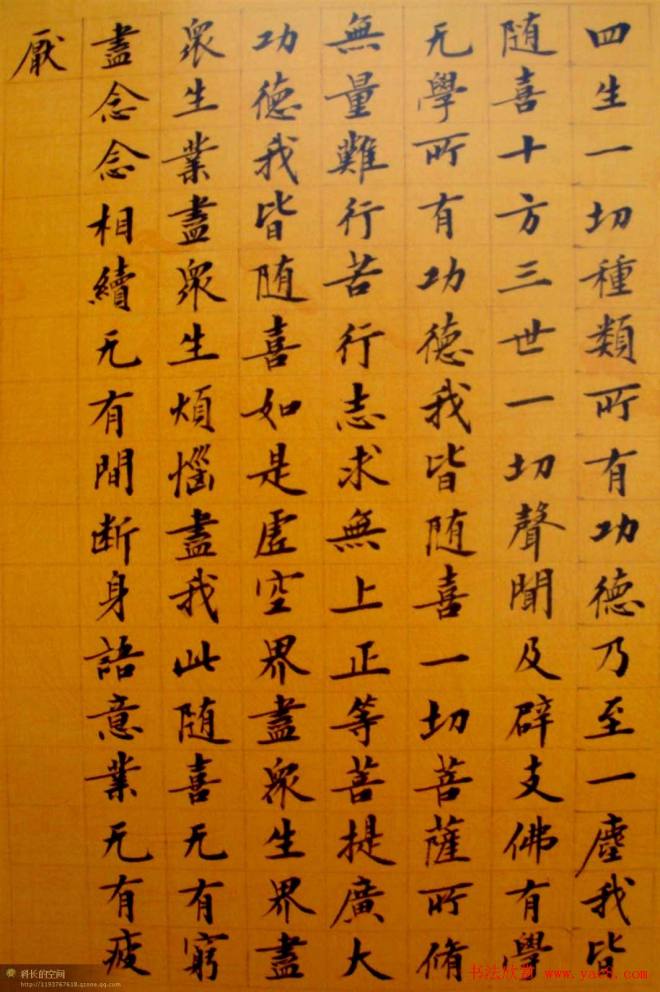 四生一切種類所有功德乃至一塵我皆
随喜十方三世一切聲聞及辟支佛有學
无學所有功德我皆随喜一切菩薩所脩
無量難行苦行志求無上正等菩提廣大
功德我皆随喜如是虛空界盡眾生界盡
眾生業盡眾生煩惱盡我此随喜无有窮
盡念念相續无有間断身語意業无有疲
厭
科长的空间
http://1193767618.qzone.qq.com
书法欣赏 www.yac8.com